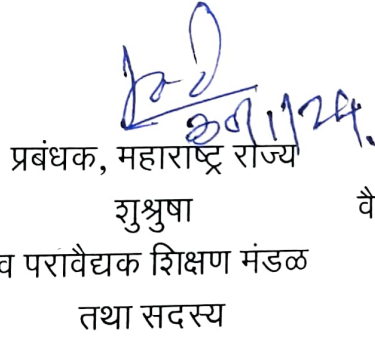 प्रबंधक, महाराष्ट्र राज्य
शुश्रुषा
व परावैद्यक शिक्षण मंडळ
तथा सदस्य
वै